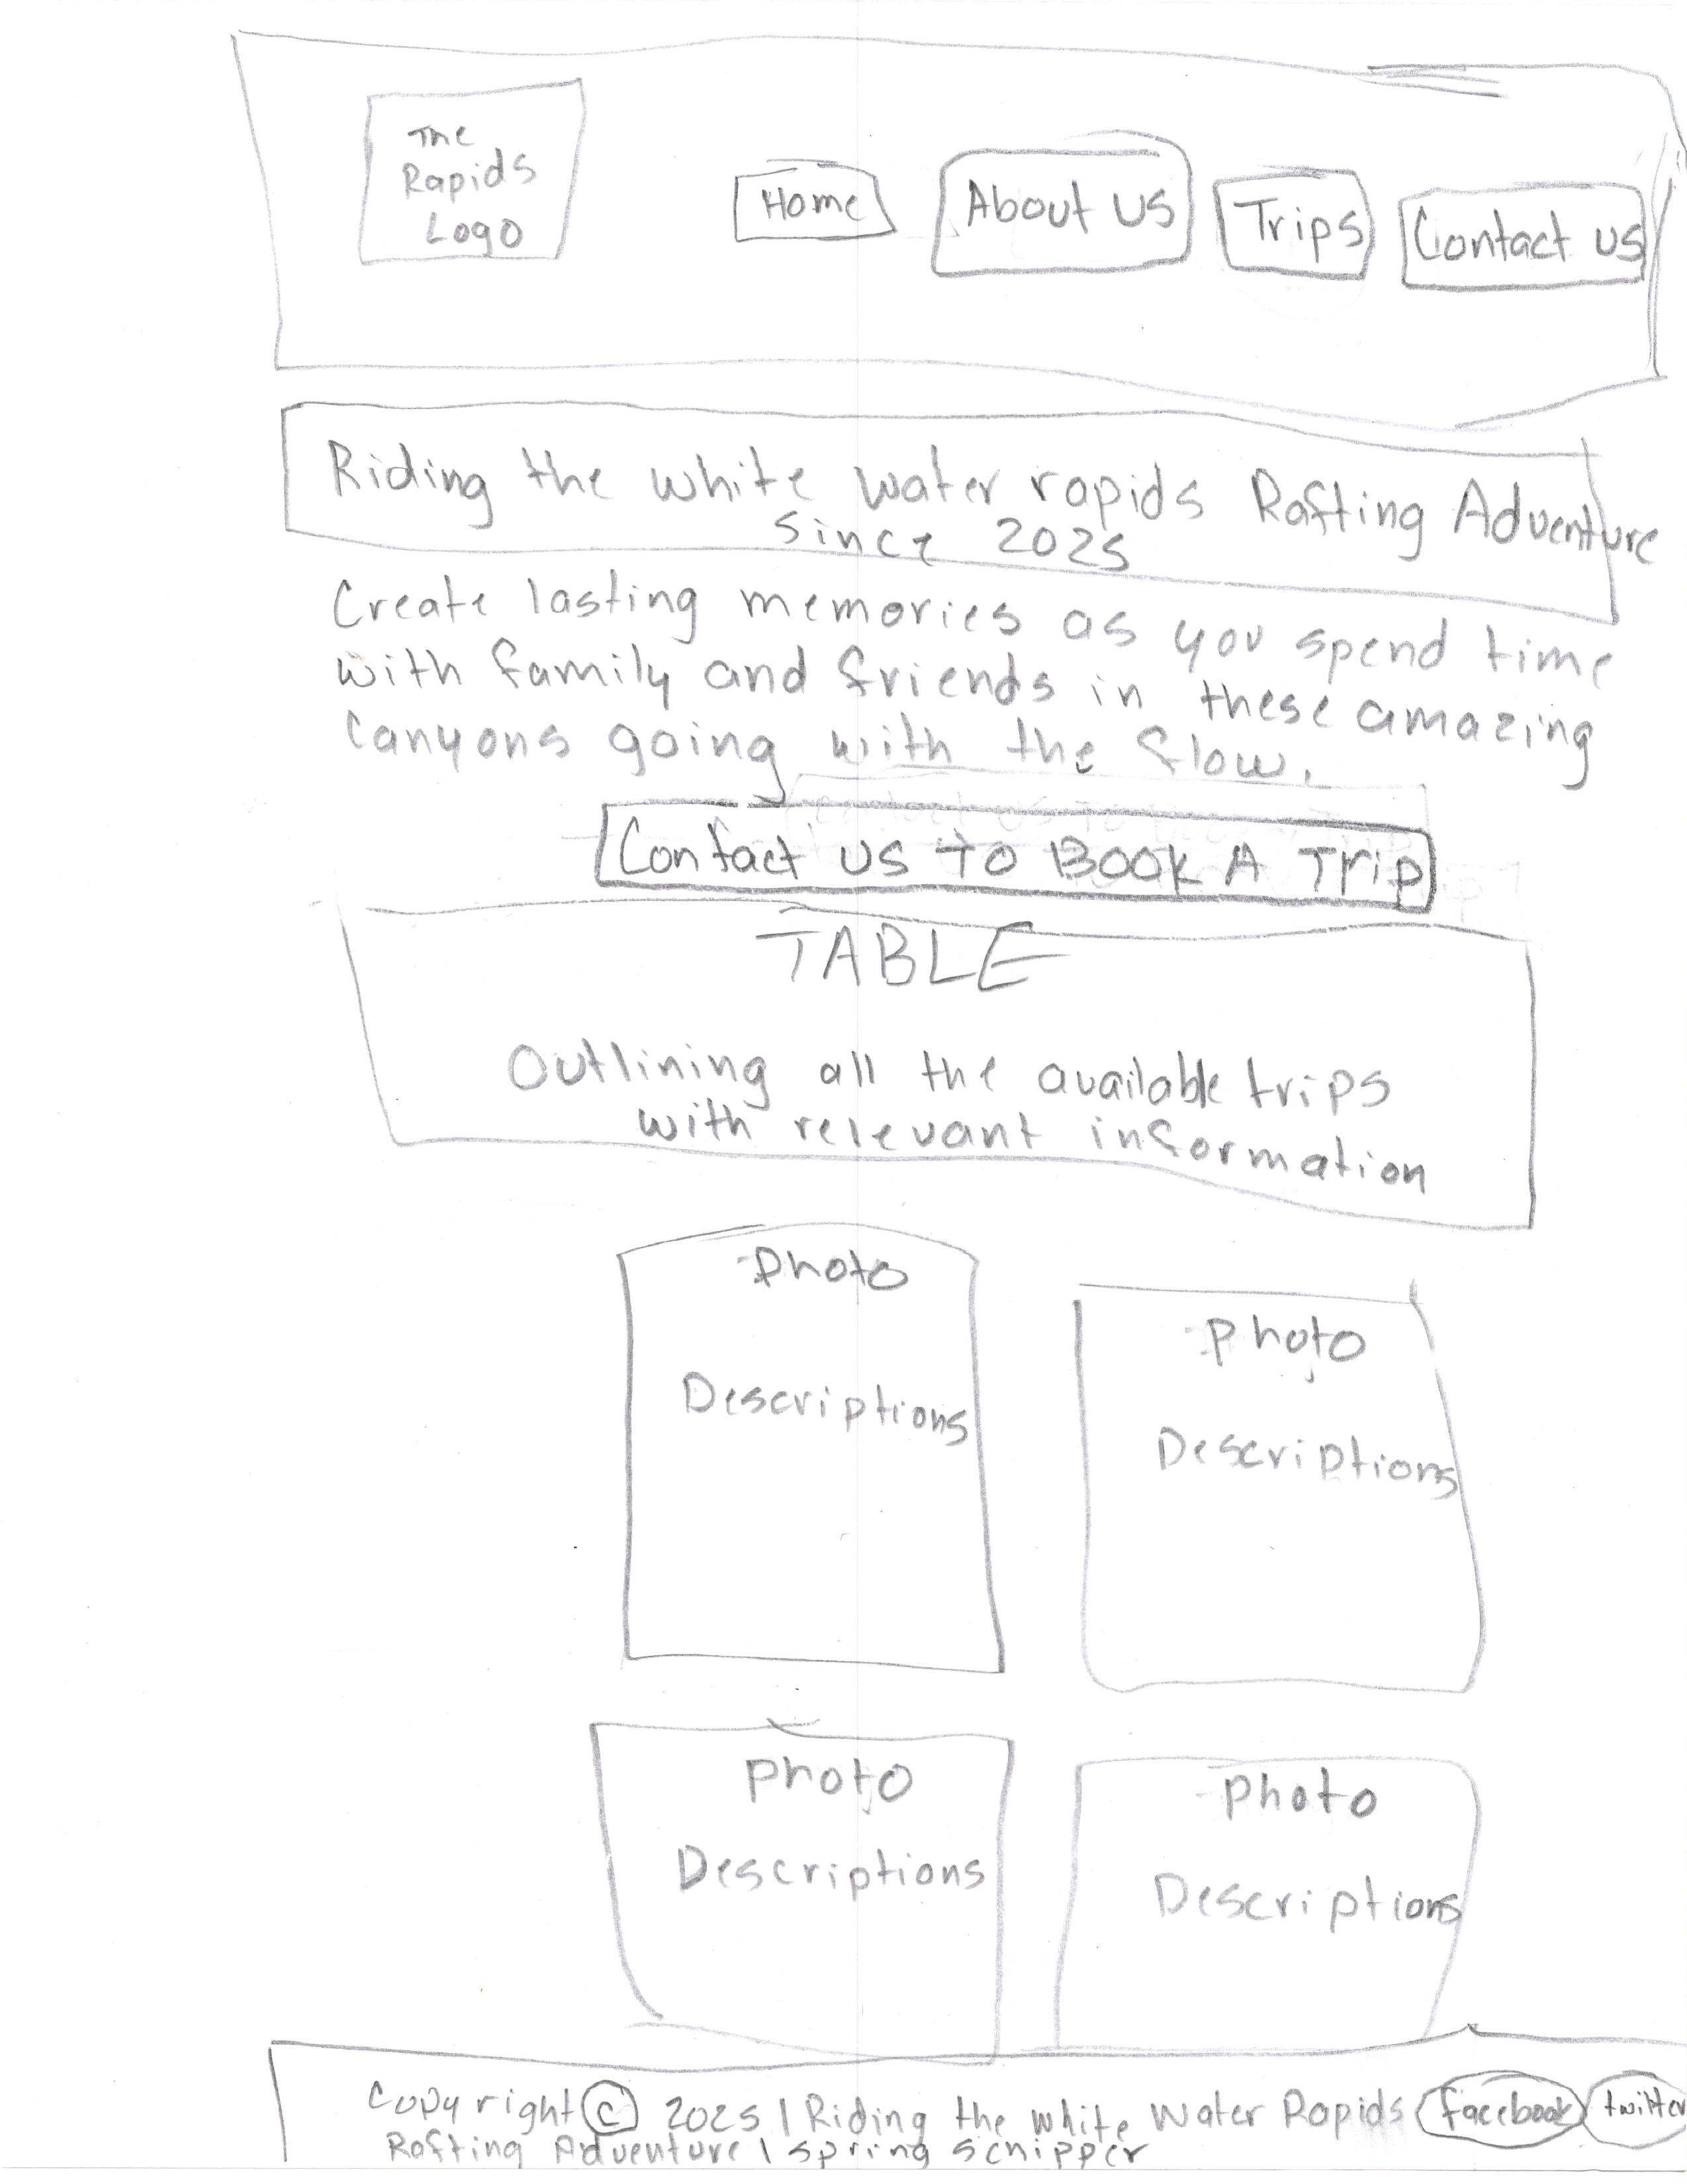 The
Rapids
Logo
Home
About us
Trips
Contact us
Riding the white water rapids Rafting Adventure
since 2025
Create lasting memories as you spend time
with family and friends in these amazing
canyons going with the flow.
Contact us To Book A Trip
TABLE
Outlining all the available trips
with relevant information
Photo
Descriptions
Photo
Descriptions
Photo
Descriptions
Photo
Descriptions
Copyright © 2025 | Riding the white Water Rapids facebook twitter
Rafting Adventure | spring schipper